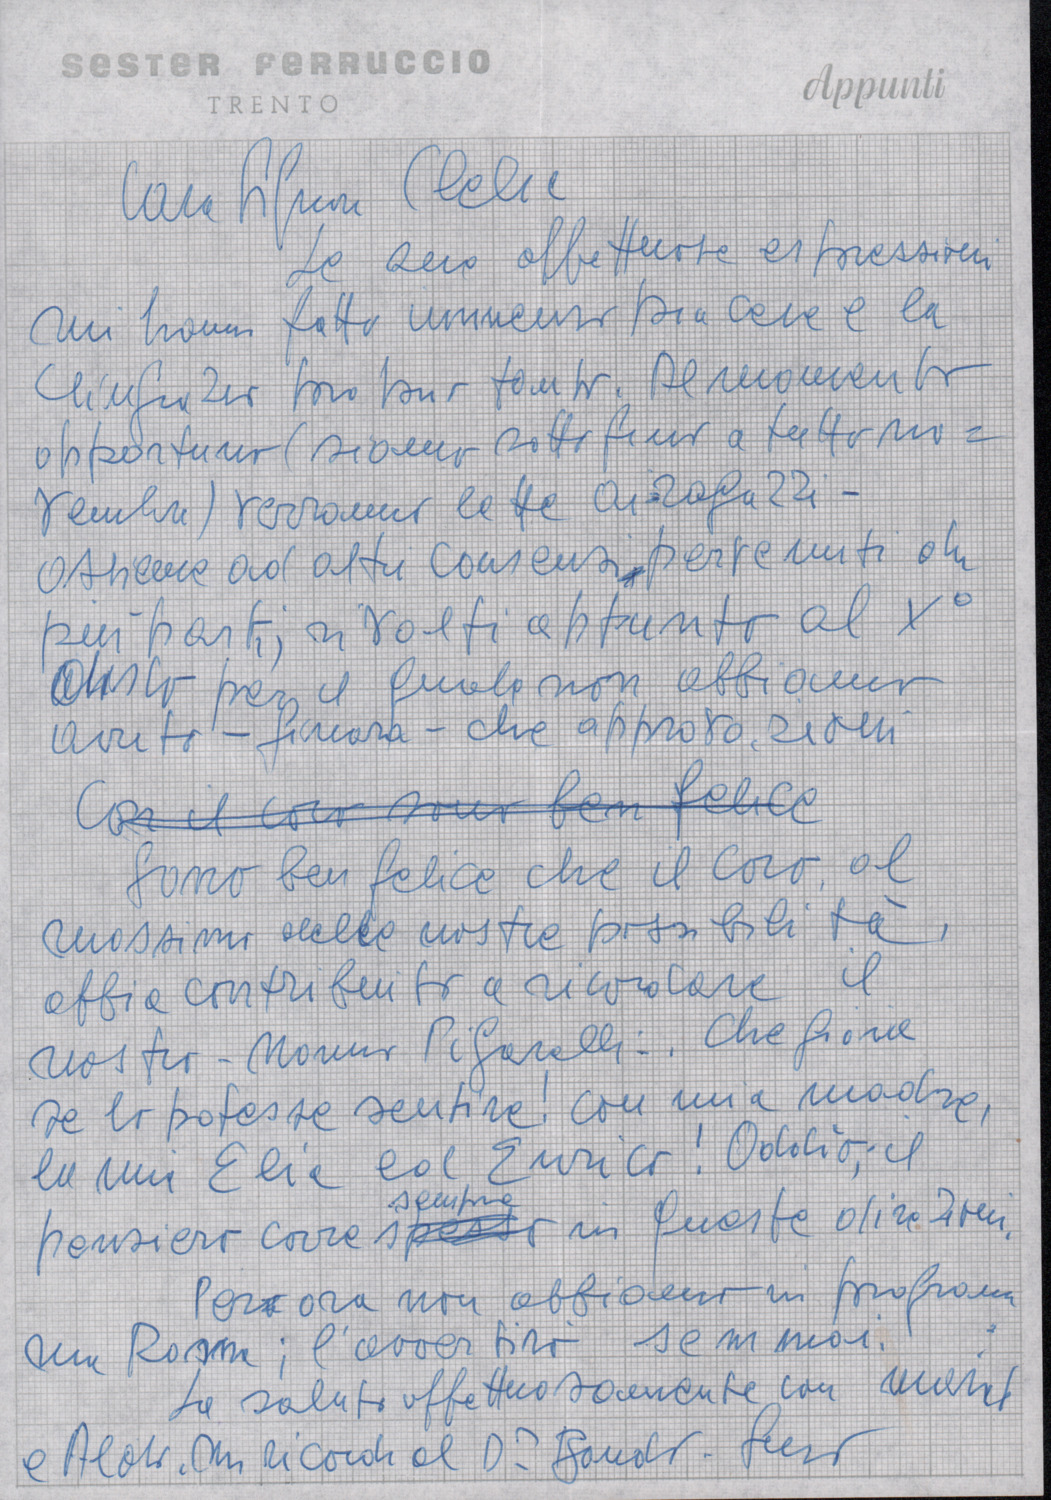 SESTER FERRUCCIO
TRENTO
Appunti
Cara Signora Clelia
Le sue affettuose espressioni
mi hanno fatto immenso piacere e la
ringrazio proprio tanto. Al momento
opportuno (siamo sotto fino a tutto no=
vembre) verranno lette ai ragazzi -
assieme ad altri consensi pervenuti da
più parti, rivolti appunto al X°
disco per il quale non abbiamo
avuto - finora - che approvazioni
Con il coro sono ben felice
Sono ben felice che il Coro, al
massimo delle nostre possibilità,
abbia contribuito a ricordare il
nostro - Nonno Pigarelli -. Che gioia
se lo potesse sentire! Con mia madre,
la mia Elia ed Enrico! Oddio, il
pensiero corre sempre in queste direzioni.
Per ora non abbiamo in programma
una Roma; l'avvertirò semmai.
La saluto affettuosamente con
e Aldo. Mi ricordi al D.